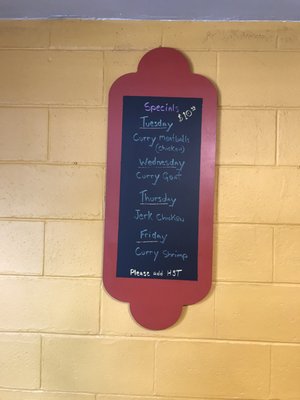 Specials
Tuesday
Curry Meatballs
(chicken)
Wednesday
Curry Goat
Thursday
Jerk Chicken
Friday
Curry Shrimp
Please add HST